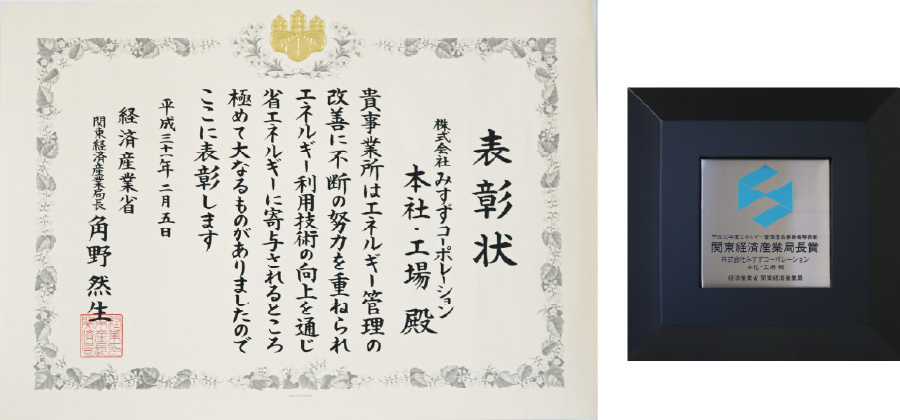 表彰状
株式会社みすずコーポレーション
本社・工場 殿
貴事業所はエネルギー管理の
改善に不断の努力を重ねられ
エネルギー利用技術の向上を通じ
省エネルギーに寄与されるところ
極めて大なるものがありましたので
ここに表彰します
平成三十一年二月五日
経済産業省
関東経済産業局長 角野然生
関東経済産業局長賞
株式会社みすずコーポレーション
本社・工場 殿
経済産業省 関東経済産業局